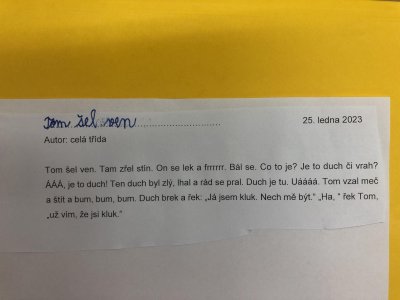 Tom šel ven
25. ledna 2023
Autor: celá třída
Tom šel ven. Tam zřel stín. On se lek a frrrrrr. Bál se. Co to je? Je to duch či vrah?
ÁÁÁ, je to duch! Ten duch byl zlý, lhal a rád se pral. Duch je tu. Uáááá. Tom vzal meč
a štít a bum, bum, bum. Duch brek a řek: „Já jsem kluk. Nech mě být." „Ha, " řek Tom,
„už vím, že jsi kluk."